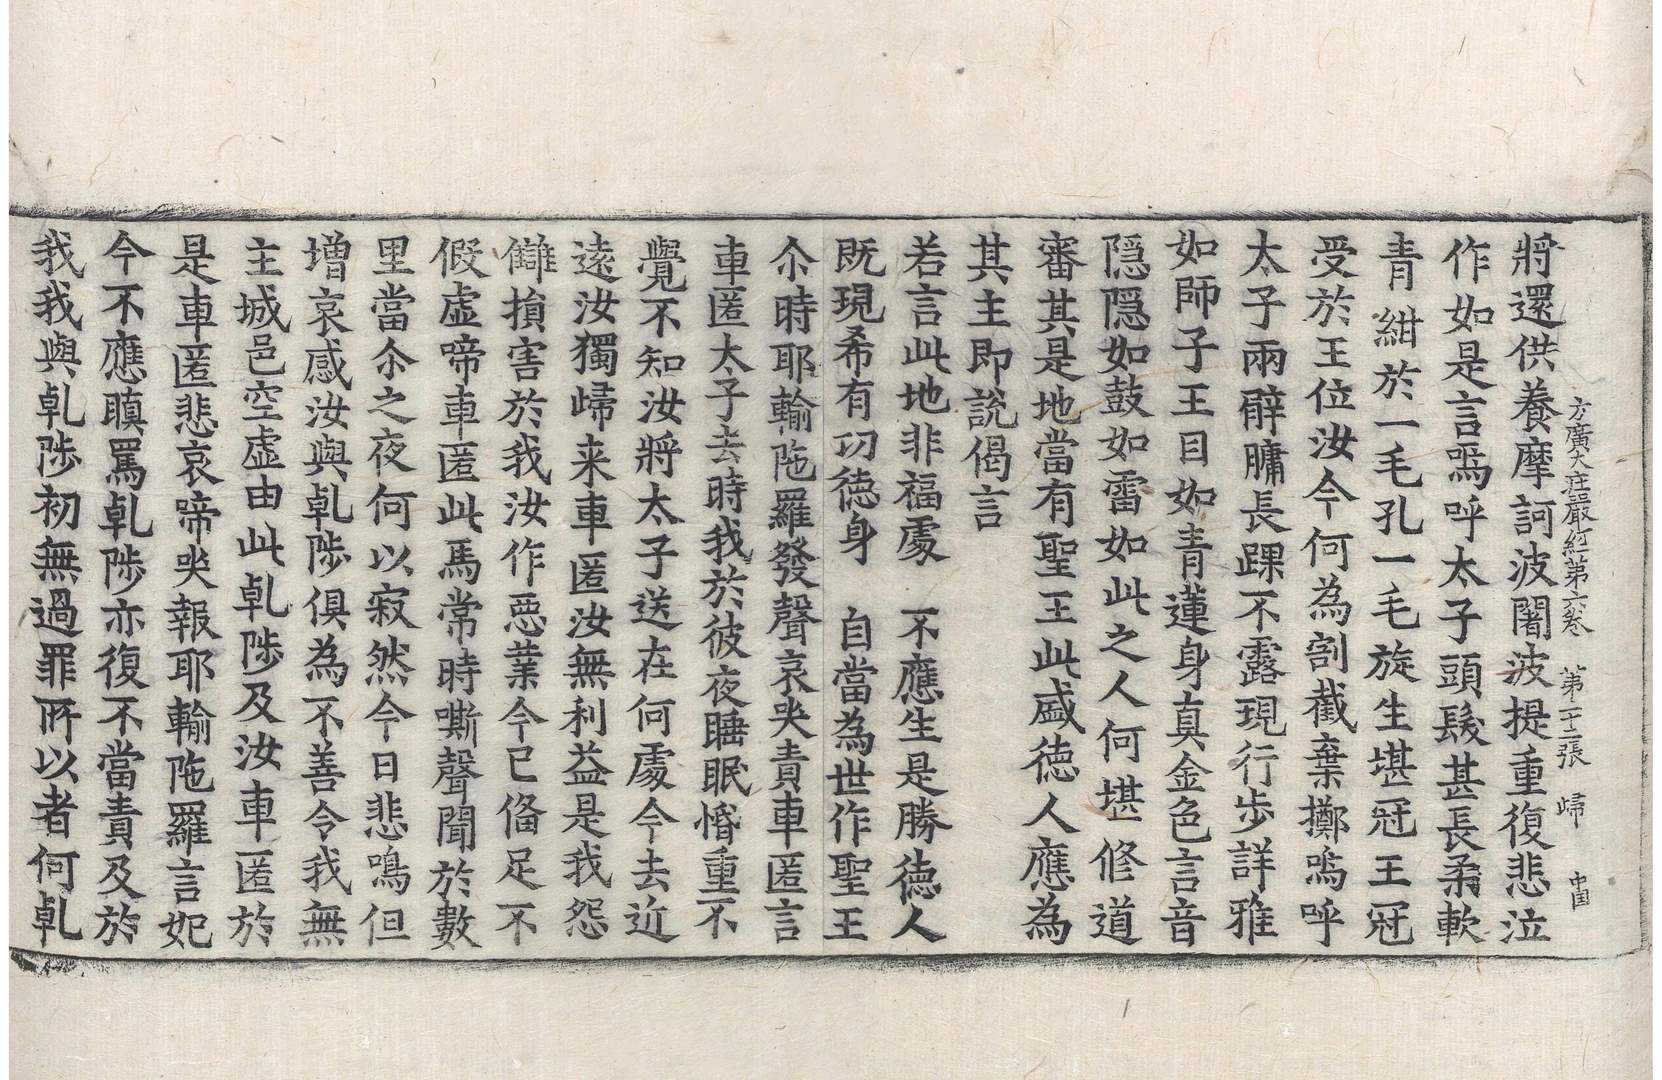 方廣大莊嚴經第六卷　第二十二張　歸　中国
將還供養摩訶波闍波提重復悲泣
作如是言嗚呼太子頭髮甚長柔軟
青紺於一毛孔一毛旋生堪冠王冠
受於王位汝今何為割截棄擲嗚呼
太子兩臂𦟛長踝不露現行步詳雅
如師子王目如青蓮身真金色言音
隱隱如鼓如雷如此之人何堪修道
審其是地當有聖王此盛德人應為
其主即說偈言
若言此地非福處　不應生是勝德人
既現希有功德身　自當為世作聖王
尒時耶輸陁羅發聲哀哭責車匿言
車匿太子去時我於彼夜睡眠惛重不
覺不知汝將太子送在何處今去近
遠汝獨歸来車匿汝無利益是我怨
讎損害於我汝作惡業今已俻足不
假虛啼車匿此馬常時嘶聲聞於數
里當尒之夜何以寂然今日悲鳴但
增哀感汝與乹陟俱為不善令我無
主城邑空虛由此乹陟及汝車匿於
是車匿悲哀啼哭報耶輸陁羅言妃
今不應瞋罵乹陟亦復不當責及於
我我與乹陟初無過罪所以者何乹